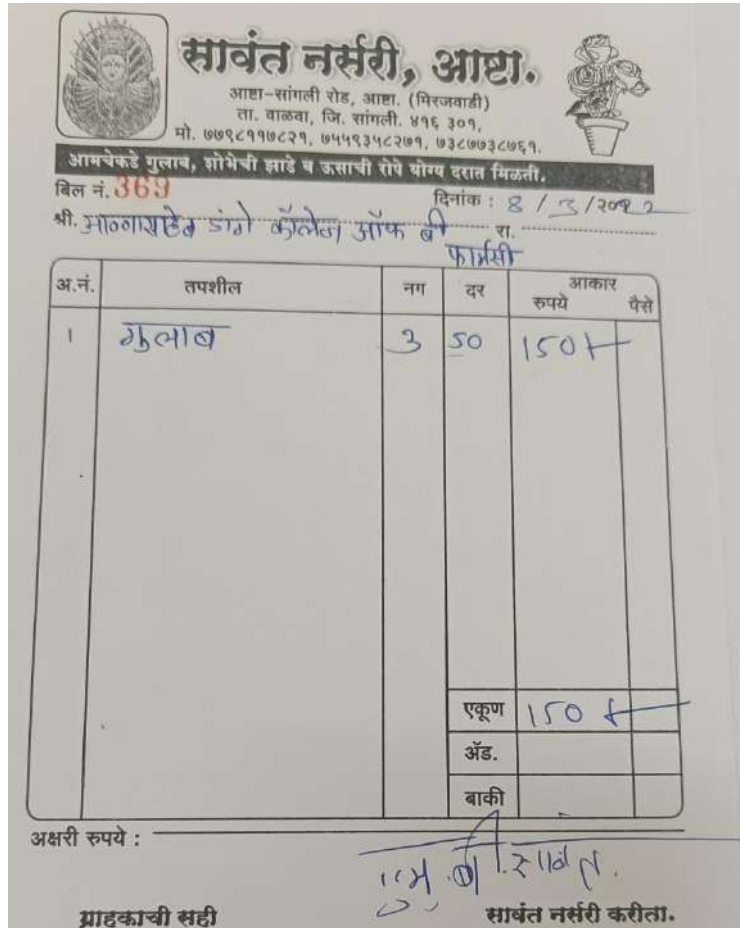 सावंत नर्सरी, आष्टा.
आष्टा-सांगली रोड, आष्टा. (मिरजवाडी)
ता. वाळवा, जि. सांगली. ४१६ ३०१,
मो. ७७९८११७८२१, ७५५९३५८२७१, ७३८७७३८७६१.
आमचेकडे गुलाब, शोभेची झाडे व ऊसाची रोपे योग्य दरात मिळती.
बिल नं. 369 दिनांक : 8 / 3 / 2022
श्री. आण्णासाहेब डांगे कॉलेज ऑफ बी रा.
फार्मसी
अ.नं. तपशील नग दर आकार
रुपये पैसे
१ गुलाब 3 50 150/-
एकूण 150/-
ॲड.
बाकी
अक्षरी रुपये :
बी. सावंत.
ग्राहकाची सही सावंत नर्सरी करीता.